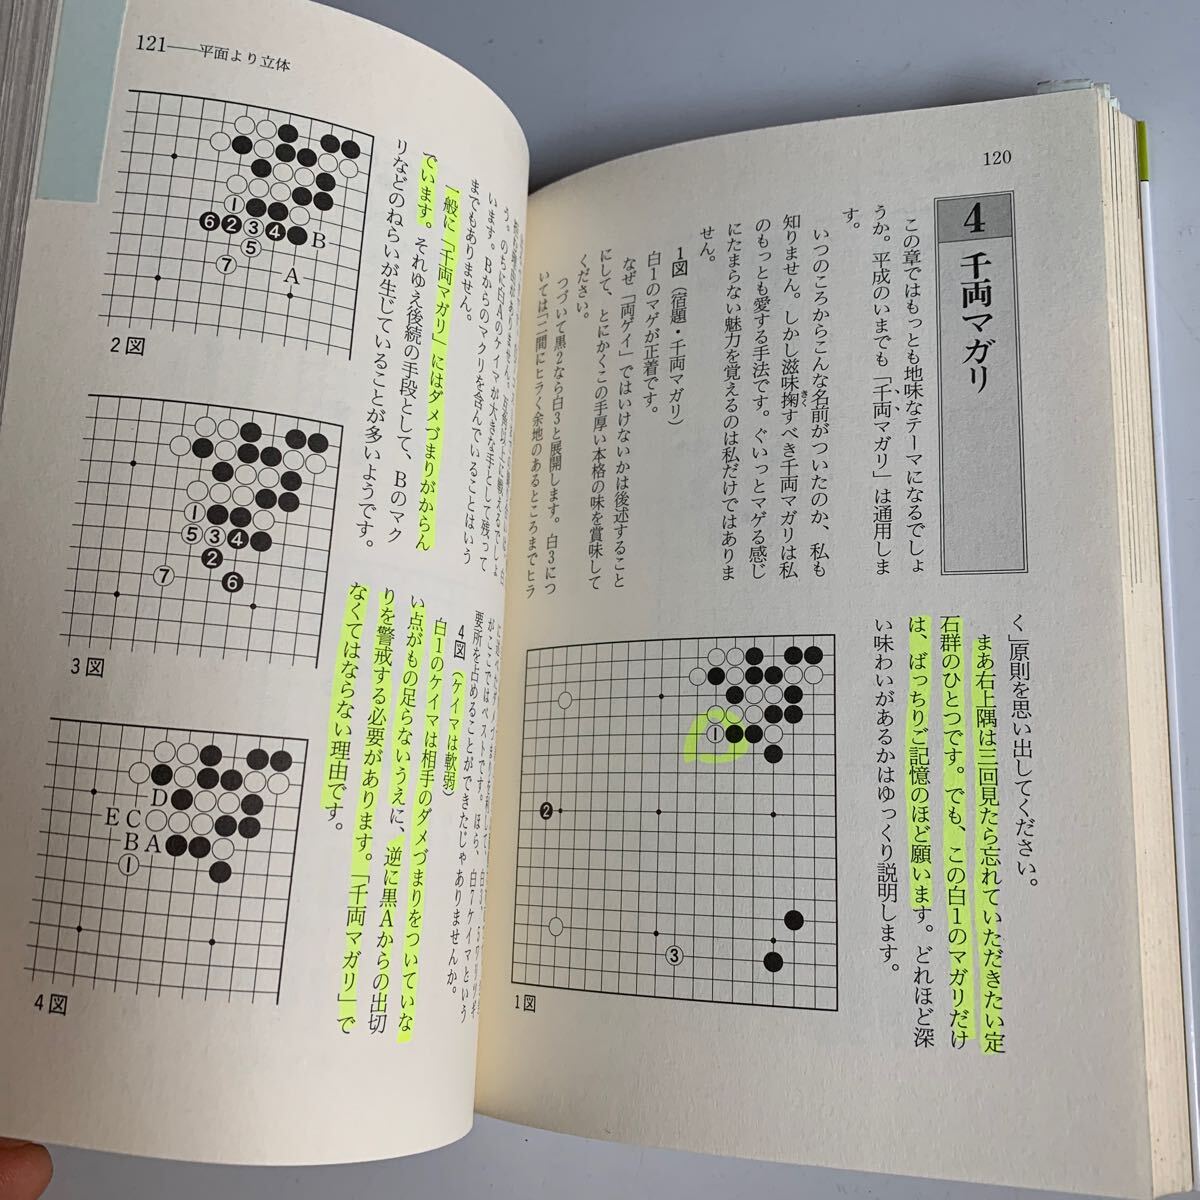 120
4 千両マガリ
この章ではもっとも地味なテーマになるでしょ
うか。平成のいまでも「千両マガリ」は通用しま
す。
いつのころからこんな名前がついたのか、私も
知りません。しかし滋味掬すべき千両マガリは私
きく
のもっとも愛する手法です。ぐいっとマゲる感じ
にたまらない魅力を覚えるのは私だけではありま
せん。
1図（宿題・千両マガリ）
白1のマゲが正着です。
なぜ「両ゲイ」ではいけないかは後述すること
にして、とにかくこの手厚い本格の味を賞味して
ください。
つづいて黒2なら白3と展開します。白3につ
いては「二間にヒラく余地のあるところまでヒラ
く」原則を思い出してください。
まあ右上隅は三回見たら忘れていただきたい定
石群のひとつです。でも、この白1のマガリだけ
は、ばっちりご記憶のほど願います。どれほど深
い味わいがあるかはゆっくり説明します。
1
2
3
1図
121――平面より立体
う。のちに白Aのケイマが大きな手として残って
います。Bからのマクリを含んでいることはいう
までもありません。
一般に「千両マガリ」にはダメづまりがからん
でいます。それゆえ後続の手段として、Bのマク
リなどのねらいが生じていることが多いようです。
要所を占めることができたじゃありませんか。
4図（ケイマは軟弱）
白1のケイマは相手のダメづまりをついていな
い点がもの足らないうえに、逆に黒Aからの出切
りを警戒する必要があります。「千両マガリ」で
なくてはならない理由です。
1
6 2 3 4 B
5
7 A
2図
1
5 3 4
2
7 6
3図
D
E C
B A
1
4図